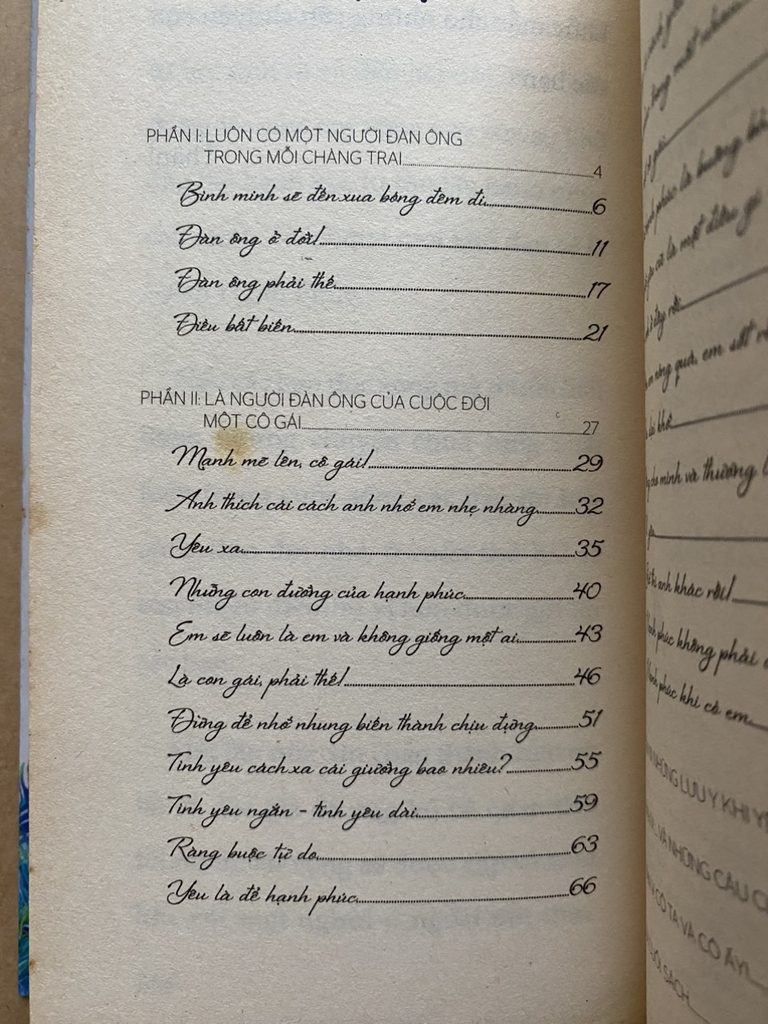 PHẦN I: LUÔN CÓ MỘT NGƯỜI ĐÀN ÔNG
TRONG MỖI CHÀNG TRAI 4
Bình minh sẽ đến xua bóng đêm đi 6
Đàn ông ở đời! 11
Đàn ông phải thế 17
Điều bất biến 21
PHẦN II: LÀ NGƯỜI ĐÀN ÔNG CỦA CUỘC ĐỜI
MỘT CÔ GÁI 27
Mạnh mẽ lên, cô gái! 29
Anh thích cái cách anh nhớ em nhẹ nhàng 32
Yêu xa 35
Những con đường của hạnh phúc 40
Em sẽ luôn là em và không giống một ai 43
Là con gái, phải thế! 46
Đừng để nhớ nhung biến thành chịu đựng 51
Tình yêu cách xa cái giường bao nhiêu? 55
Tình yêu ngắn - tình yêu dài 59
Ràng buộc tự do 63
Yêu là để hạnh phúc 66
phúc là
là một điều gì
quá, em
cho mình và thương
thì anh khác rồi!
phúc không phải
phúc khi có em
NHỮNG LƯU Ý KHI
VÀ NHỮNG CÂU
CÔ TA VÀ CÔ ẤY
SÁCH